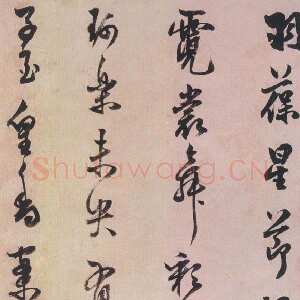 羽葆星節
霓裳舞彩
樂未央
子玉皇香案
Shufawang.CN